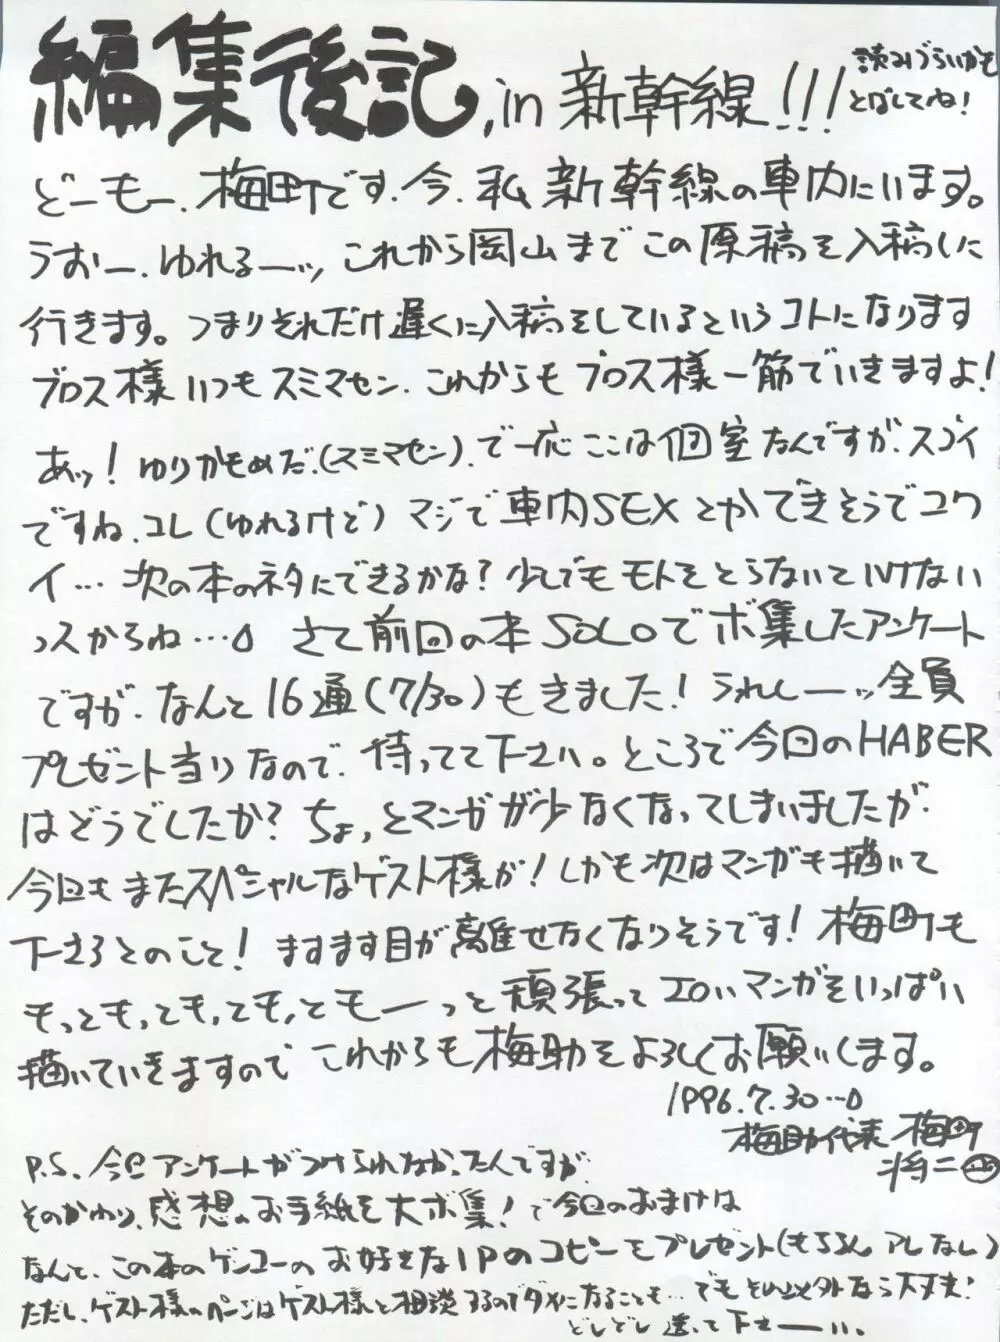 編集後記, in 新幹線!!!
読みづらいかも
とばしてね!
どーもー、梅町です。今、私、新幹線の車内にいます。
うおー、ゆれるーッ、これから岡山までこの原稿を入稿しに
行きます。つまりそれだけ遅くに入稿をしているというコトになります
ブロス様いつもスミマセン、これからもブロス様一筋でいきますよ!
あッ!ゆりかもめだ、(スミマセン)、で一応ここは個室なんですが、スゴイ
ですね、コレ(ゆれるけど)マジで車内SEXとかできそうでコワ
イ…次の本のネタにできるかな?少しでもモトをとらないといけない
っスからね… さて前回の本SOLOでボ集したアンケート
ですが、なんと16通(7/30)もきました!うれしーーッ全員
プレゼント当りなので、待ってて下さい。ところで今回のHABER
はどうでしたか?ちょっとマンガが少なくなってしまいましたが、
今回もまたスペシャルなゲスト様が!しかも次はマンガも描いて
下さるとのこと!ますます目が離せなくなりそうです!梅町も
もっともっとも、とも、ともーっと頑張ってエロいマンガをいっぱい
描いていきますので これからも梅助をよろしくお願いします。
1996.7.30…
梅助代表 梅町
将二
P.S. 今回アンケートがつけられなかったんですが、
そのかわり、感想のお手紙を大ボ集!で今回のおまけは
なんと、この本のゲンコーのお好きな1Pのコピーをプレゼント(もちろんアレなし)
ただし、ゲスト様のページはゲスト様と相談するのでダメになることも…でもそれ以外なら大丈夫!
どしどし送って下さーーい。